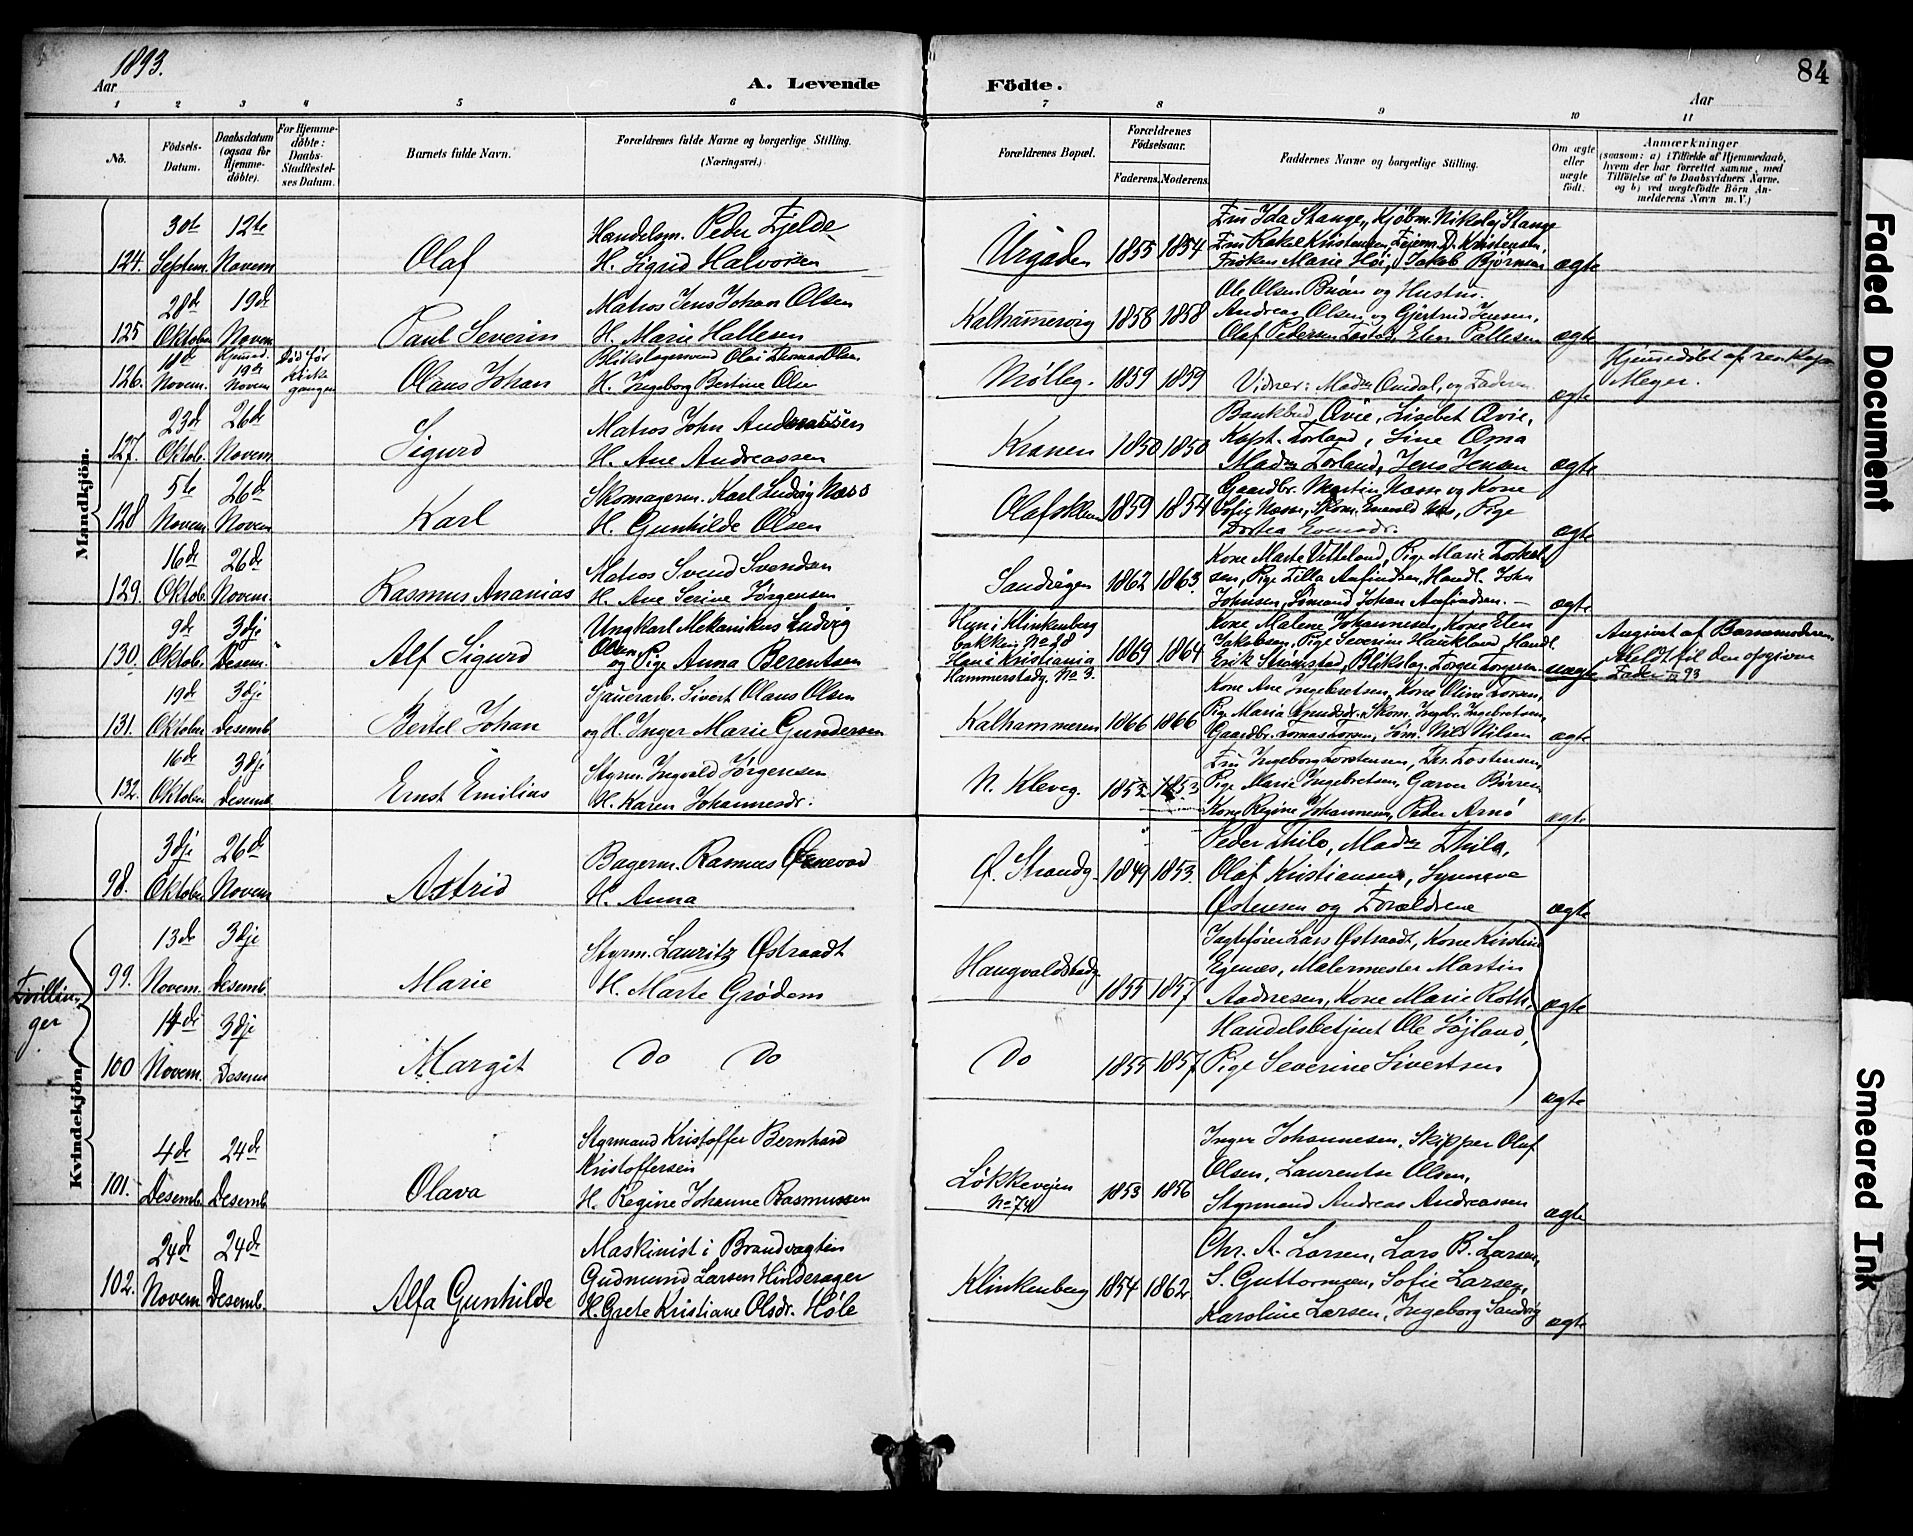 1893.
84
Aar
A. Levende
Födte.
Aar
1 2 3 4 5 6 7 8 9 10 11
No.
Födsels-Datum.
Daabsdatum (ogsaa for Hjemme-döbte).
For Hjemme-döbte: Daabs-Stadfæstel-ses Datum.
Barnets fulde Navn.
Forældrenes fulde Navne og borgerlige Stilling. (Næringsvei.)
Forældrenes Bopæl.
Forældrenes Födselsaar.
Faderens. Moderens.
Faddernes Navne og borgerlige Stilling.
Om ægte eller uægte födt.
Anmærkninger
(saasom: a) i Tilfælde af Hjemmedaab, hvem der har forrettet samme, med Tilföielse af to Daabsvidners Navne, og b) ved uægtefödte Börn An-melderens Navn m. V.)
Mandkjön.
124. 30te Septem. 12te Novem. Olaf
Handelsm. Peder Fjelde
H. Sigrid Halvorsen
Urgaden 1855 1854
Fru Ida Stange, Kjøbm. Nikolaj Stange
Fru Rakel Kristensen, D. Kristensen,
Frøken Marie Høi, Jakob Bjørnsen
ægte
125 28de Oktober 19de Novem. Paul Severin
Matros Jens Johan Olsen
H. Marie Hallesen
Kalhammervig 1858 1858
Ole Olsen og Hustru.
Andreas Olsen og Gjertrud Jensen,
Olaf Pedersen Elen Pallesen
ægte
126. 10de Novem. Hjemmed. 19de Novem Død før Kirke gangen Olaus Johan
Blikslagersvend Olai Thomas Olsen
H. Ingeborg Bertine Olsen
Mølleg. 1859 1859
Vidner: Madm Omdal, og Faderen
ægte
Hjemmedøbt af res. Kap. Meyer.
127. 23de Oktob. 26de Novem. Sigurd
Matros John Andreassen
H. Ane Andreassen
Kranen 1850 1850
Bankbud Øvie, Lisebet Øvie,
Kapt. Torland, Sine Oma
Madm Torland, Jens Jensen
ægte
128 5te Novem. 26de Novem Karl
Skomagerm. Karl Ludvig Næss
H. Gunhilde Olsen
Olafsklev 1859 1854
Gaardbr. Martin Næsse og Kone
Sofie Næsse, Skom. Enevald Næs, Pige
Dortea Evensdr.
ægte
129. 16de Oktob. 26de Novem. Rasmus Ananias
Matros Svend Svendsen
H. Ane Serine Jørgensen
Sandvigen 1862 1863.
Kone Marte Vetteland, Pige Marie Torkel-
sen, Pige Tilla Anfindsen, Handl. John
Johnsen, Sømand Johan Anfindsen.
ægte
130. 9de Oktob. 3dje Desem. Alf Sigurd
Ungkarl Mekanikus Ludvig
Olsen
og Pige Anna Berentsen
Hun i Klinkenberg
bakken No 28
Han i Kristiania
Hammerstadg. No 3.
1869 1864
Kone Malene Johannesen, Kone Elen
Jakobsen, Pige Severine Haukland, Handl.
Erik Strømstad, Blikslag. Torger Torgersen
uægte
Angivet af Barnemoderen.
Meldt til den opgivne
Fader 93
131. 19de Oktober 3dje Desemb. Bertel Johan
Sjauerarb. Sivert Olaus Olsen
og H. Inger Marie Gundersen
Kalhammeren 1866 1866
Kone Ane Ingebretsen, Kone Oline Torsen,
Pige Maria Knudsdr. Skom. Ingebr. Ingebretsen,
Gaardbr. Tomas Torsen, Søm. Nils Nilsen
ægte
132. 16de Oktober 3dje Desemb. Ernst Emilius
Styrm. Ingvald Jørgensen
H. Karen Johannesdr.
N. Kleveg. 1852 1853
Fru Ingeborg Torstensen, Thr. Tostensen,
Pige Marie Ingebretsen, Garver Børresen
Kone Regine Johannesen, Peder Arnø
ægte
Kvindekjön.
98. 3dje Oktober 26de Novem Astrid
Bagerm. Rasmus Ørnevad
H. Anna
Ø. Strandg. 1849 1853.
Peder Thilo, Madm Thilo,
Olaf Kristiansen, Synneva
Østensen og Forældrene
ægte
Tvillin-
ger
99. 13de Novem. 3dje Desemb. Marie
Styrm. Lauritz Østraadt
H. Marte Grødem
Haugvaldstadg. 1855 1857
Jagtefører Lars Østraadt, Kone Kirstine
Egenæs, Malermester Martin
Aadnesen, Kone Marie Roth,
ægte
100 14de Novem. 3dje Desem Margit
Do Do
Do 1855 1857
Handelsbetjent Ole Søyland,
Pige Severine Sivertsen
ægte
101. 4de Desemb. 24de Desemb. Olava
Styrmand Kristoffer Bernhard
Kristoffersen
H. Regine Johanne Rasmussen
Løkkeveien
No 74
1853 1856
Inger Johannesen, Skipper Olaf
Olsen, Laurentse Olsen,
Styrmand Andreas Andreassen
ægte
102. 24de Novem 24de Desemb. Alfa Gunhilde
Maskinist i Brandvagten
Gudmund Larsen Hinderager
H. Grete Kristiane Olsdr. Høle
Klinkenberg 1854 1862
Chr. A. Larsen, Lars B. Larsen,
S. Guttormsen, Sofie Larsen,
Karoline Larsen, Ingeborg Sandvig
ægte
Faded Document
Smeared Ink